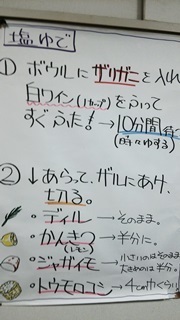 塩ゆで
① ボウルにザリガニを入れ
白ワイン(1カップ)をふって
すぐふた!→10分間待つ
(時々ゆする)
② ↓あらって、ザルにあけ、
切る。
・ディル→そのまま。
・かんきつ→半分に。
(レモン)
・ジャガイモ→小さいのはそのまま
大きめのは半分。
・トウモロコシ→4cm巾くらい